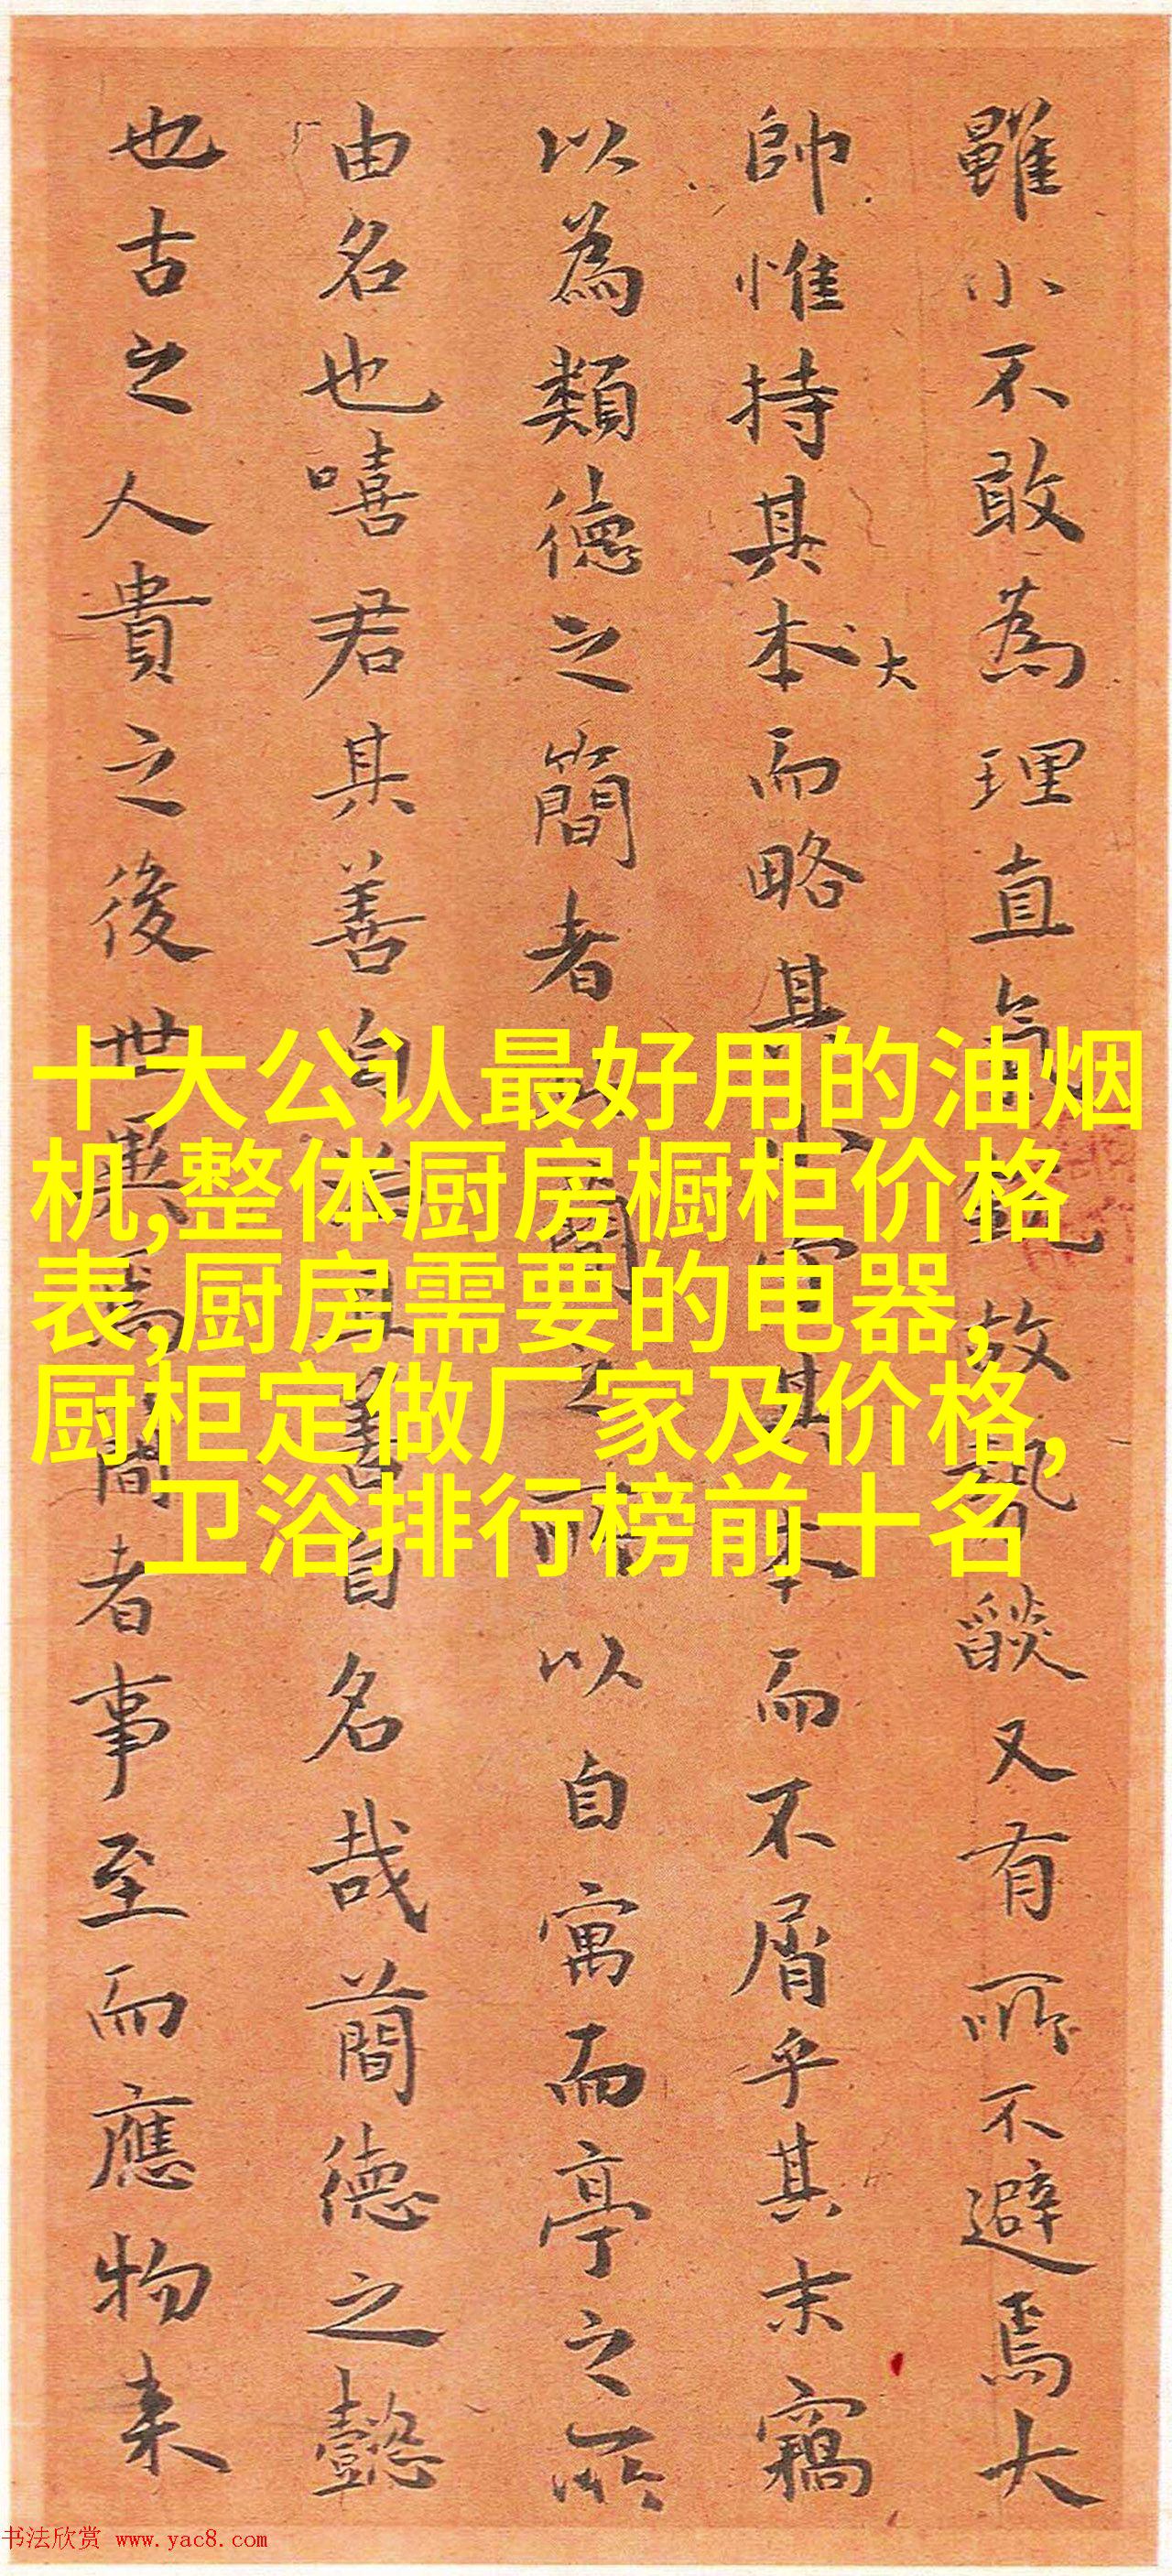 雖小不敢為理直氣故又有所不避焉大
帥惟持其本而略其小其本而不屑乎其末竊
大
以為類德之簡者簡之所以自寓而亭之所
由名也嘻君其善自其善自名哉蕳德之懿
也古之人貴之後世異焉簡者事至而應物来
十大公认最好用的油烟
机,整体厨房橱柜价格
表,厨房需要的电器,
厨柜定做厂家及价格,
卫浴排行榜前十名
书法欣赏 www.yac8.com